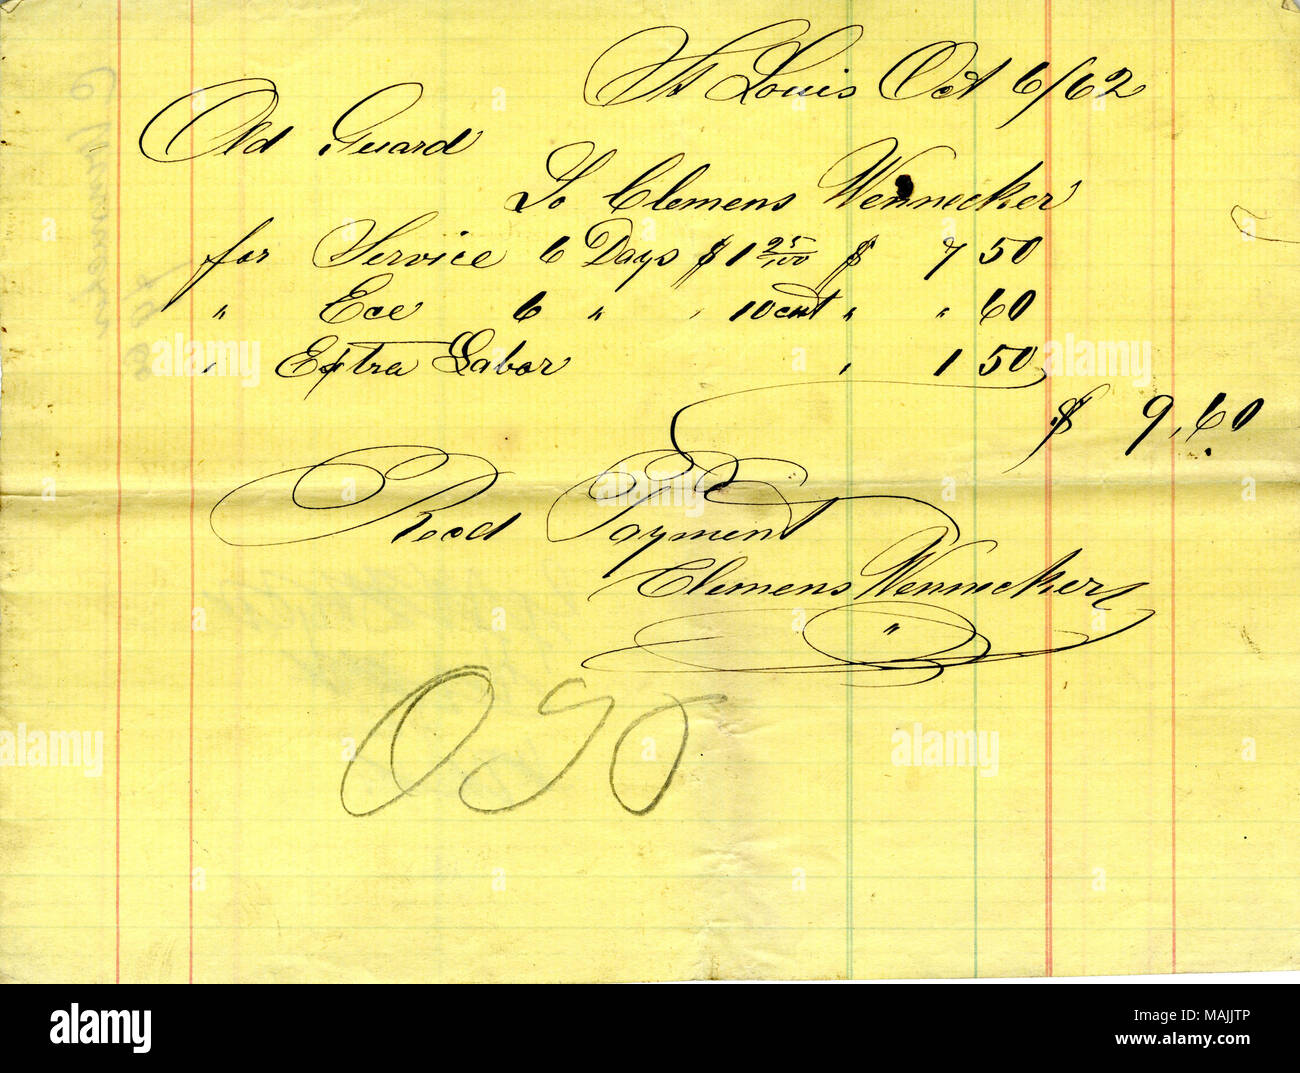 St Louis Oct 6/62
Old Guard
To Clemens Wennecker
for Service 6 Days $1 25/100 $ 7 50
" Ece 6 " " 10 cent " " 60
" Extra Labor " 1 50
$ 9,60
Recd Payment
Clemens Wennecker
"
alamy
alamy
Image ID: MAJJTP
www.alamy.com